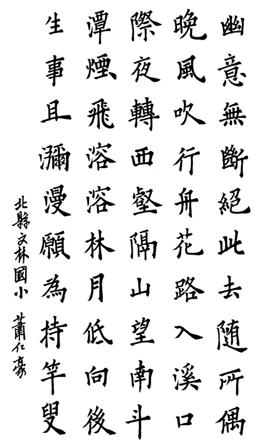 幽意無斷絕此去隨所偶
晚風吹行舟花路入溪口
際夜轉西壑隔山望南斗
潭煙飛溶溶林月低向後
生事且瀰漫願為持竿叟
北縣文林國小 蕭仁豪